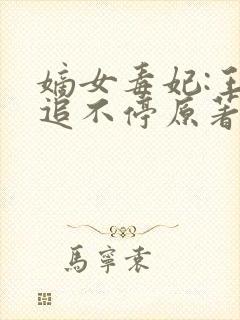 嫡女毒妃:王
追不停原著
馬寧袁